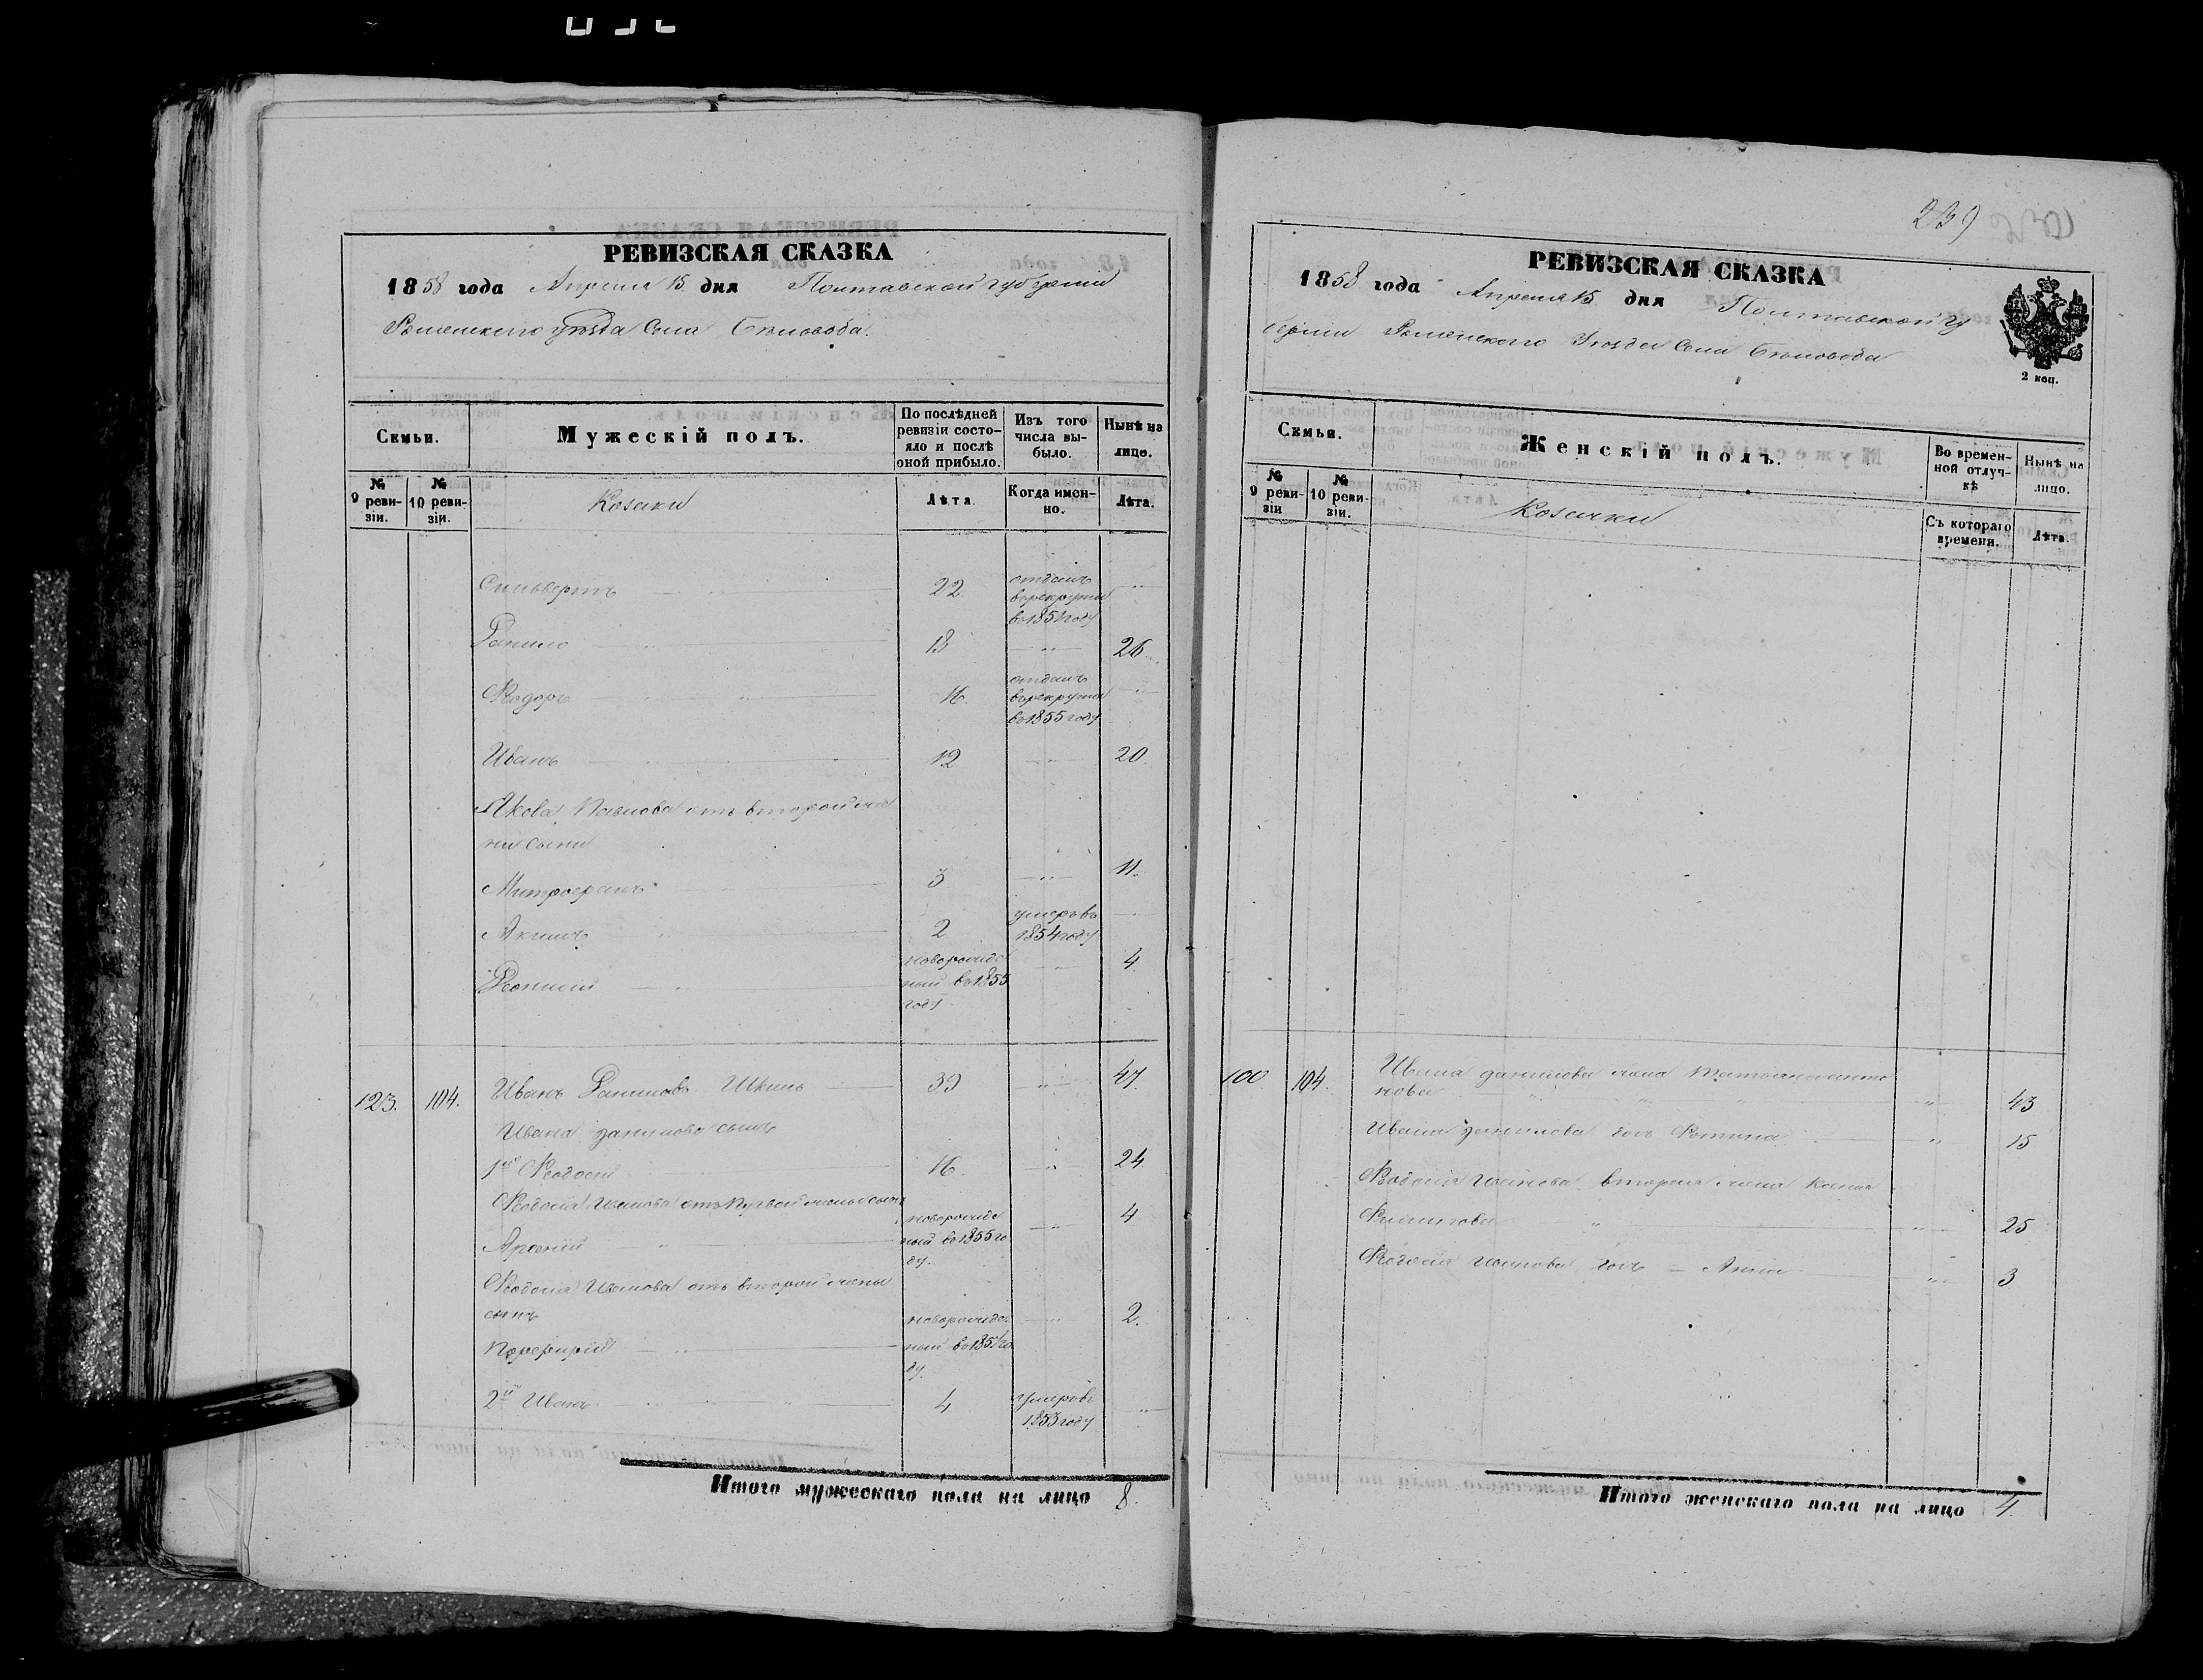 РЕВИЗСКАЯ СКАЗКА
1858 года Апреля 15 дня Полтавской губерніи
Роменского уѣзда Села Бѣловода.
Семьи.
Мужескій полъ.
По послѣдней ревизіи состояло и послѣ оной прибыло.
Изъ того числа выбыло.
Нынѣ на лицо.
№ 9 ревизіи.
№ 10 ревизіи.
Козаки
Лѣта.
Когда именно.
Лѣта.
22 отданъ в рекруты в 1854 году
Данило 18 26
Ѳедоръ 16. отданъ в рекруты в 1855 году
Иванъ 12 20
Якова Павлова отъ второй же
ны сыны
Митрофанъ 3 11.
Акимъ 2 умеръ в 1854 году
новорожденый в 1855 году 4
123. 104. Иванъ Даниловъ 39 47
Ивана Данилова сынъ
1й Ѳеодосій 16. 24
Ѳеодосія Иванова отъ первой жены сынъ
Арсеній новорожденый в 1855 году. 4
Ѳеодосія Иванова отъ второй жены
сынъ
Порфирій новорожденый в году. 2.
2й Иванъ 4 умеръ в 1853 году
Итого мужескаго пола на лицо 8.
239
РЕВИЗСКАЯ СКАЗКА
1858 года Апреля 15 дня Полтавской гу
берніи Роменского Уѣзда Села Бѣловода
2 коп.
Семьи.
Женскій полъ.
Во временной отлучкѣ
Нынѣ на лицо.
№ 9 ревизіи
№ 10 ревизіи.
Козачки
Съ котораго времени.
Лѣта.
100. 104. Ивана Данилова жена Татьяна Анто
нова 43
Ивана Данилова дочь 15
Ѳеодосія Иванова вторая жена
25
Ѳеодосія Иванова дочь Анна 3
Итого женскаго пола на лицо 4.